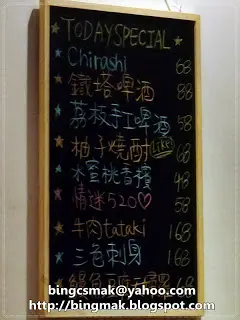 TODAY SPECIAL
Chirashi 68
鐵塔啤酒 88
荔枝手工啤酒 58
柚子燒酎 Like 68
水蜜桃香檳 48
情迷520♡ 58
牛肉tataki 168
三色刺身 168
168
bingcsmak@yahoo.com
http://bingmak.blogspot.com